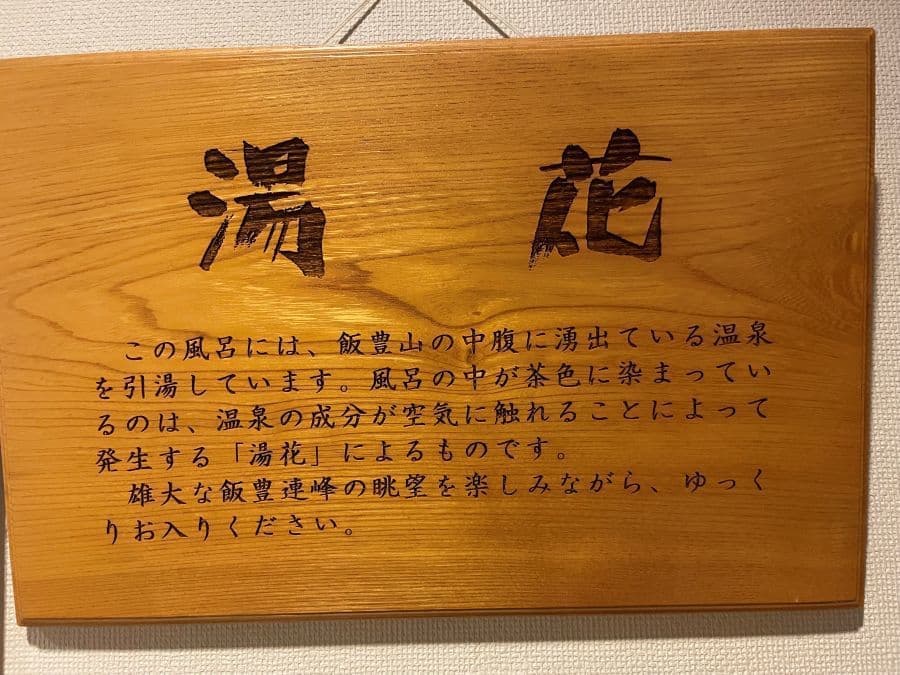 湯花
この風呂には、飯豊山の中腹に湧出ている温泉
を引湯しています。風呂の中が茶色に染まってい
るのは、温泉の成分が空気に触れることによって
発生する「湯花」によるものです。
雄大な飯豊連峰の眺望を楽しみながら、ゆっく
りお入りください。